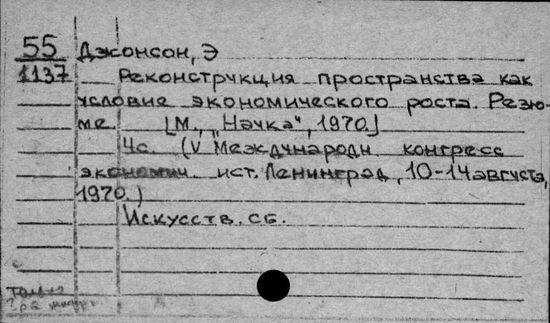 55 Джонсон, Э
1137 Реконструкция пространства как
условие экономического роста. Резю-
ме. [М., „Наука", 1970]
4с. (V Междунаpодн. конгресс
экономич. ист. Ленинград, 10-14 августа,
1970.)
Искусств. сб.
только